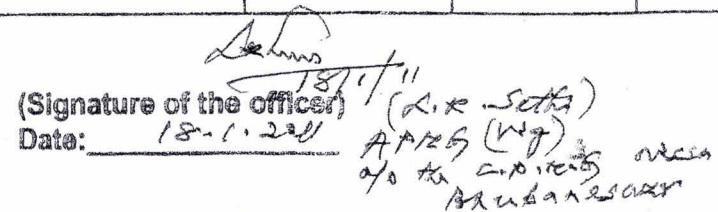 18/1/11
(Signature of the officer) (L.K. Sethi)
Date: 18.1.2011 APMG (Vig)
O/o the C.P.M.G
Bhubaneswar